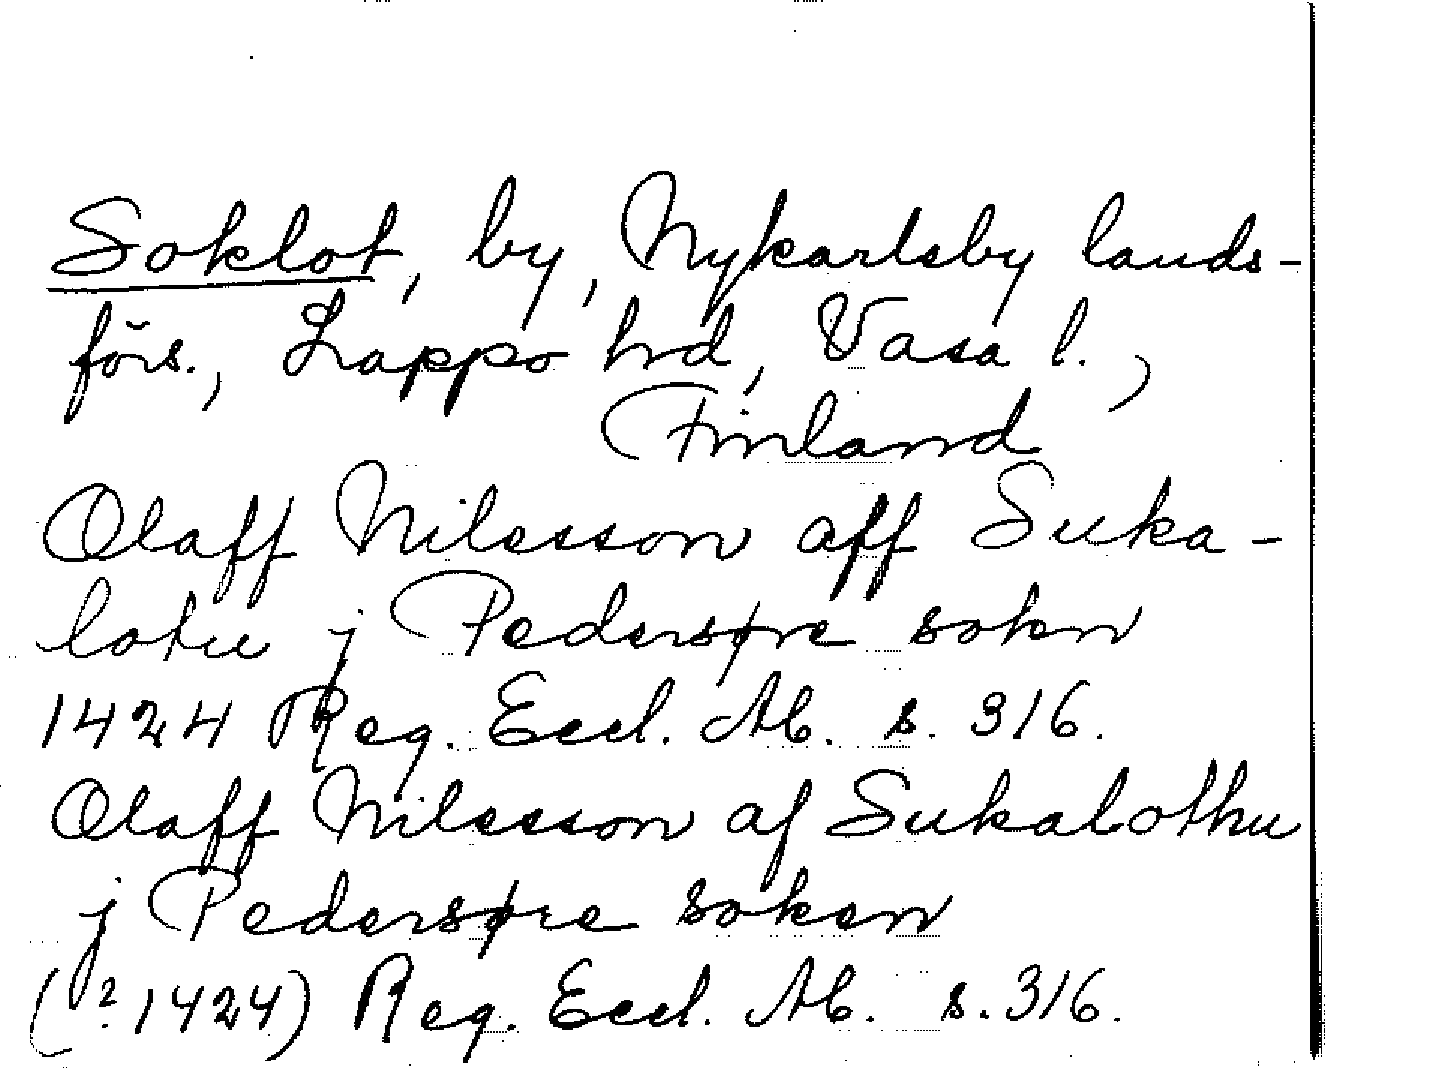 Soklot, by, Nykarleby lands-
förs., Lappo hrd, Vasa l.,
Finland
Olaff Nilsson aff Suka-
lotu j Pedersøre sokn
1424 Reg. Eccl. Ab. s. 316.
Olaff Nilsson af Sukalothu
j Pedersøre soken
(?1424) Reg. Eccl. Ab. s. 316.